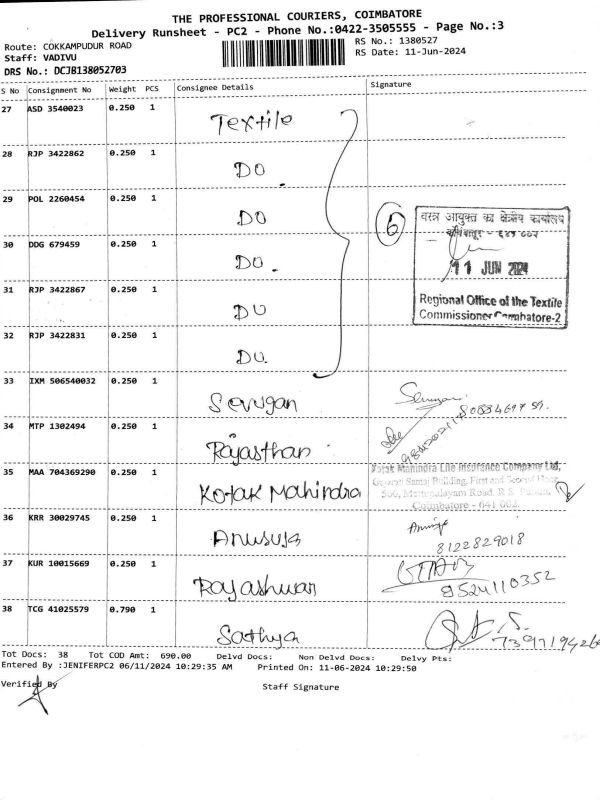 THE PROFESSIONAL COURIERS, COIMBATORE
Delivery Runsheet - PC2 - Phone No.:0422-3505555 - Page No.:3
Route: COKKAMPUDUR ROAD
RS No.: 1380527
Staff: VADIVU
RS Date: 11-Jun-2024
DRS No.: DCJB138052703
S No Consignment No Weight PCS Consignee Details Signature
27 ASD 3540023 0.250 1 Textile
28 RJP 3422862 0.250 1 DO.
29 POL 2260454 0.250 1 DO
6
वस्त्र आयुक्त का क्षेत्रीय कार्यालय
30 DDG 679459 0.250 1 DO.
11 JUN 2024
31 RJP 3422867 0.250 1 DO
Regional Office of the Textile
Commissioner Coimbatore-2
32 RJP 3422831 0.250 1 DO.
33 IXM 506540032 0.250 1 Sevugan
34 MTP 1302494 0.250 1 Rajasthan
35 MAA 704369290 0.250 1 Kotak Mahindra
Kotak Mahindra Life Insurance Company Ltd,
Gujarati Samaj Building, First and Second Floor
500, Mettupalayam Road, R.S. Puram,
Coimbatore - 641 002.
36 KRR 30029745 0.250 1 Anusuja
8122829018
37 KUR 10015669 0.250 1 Rajashwari
9524110352
38 TCG 41025579 0.790 1 Sathya
Tot Docs: 38 Tot COD Amt: 690.00 Delvd Docs: Non Delvd Docs: Delvy Pts:
Entered By :JENIFERPC2 06/11/2024 10:29:35 AM Printed On: 11-06-2024 10:29:50
Verified By Staff Signature